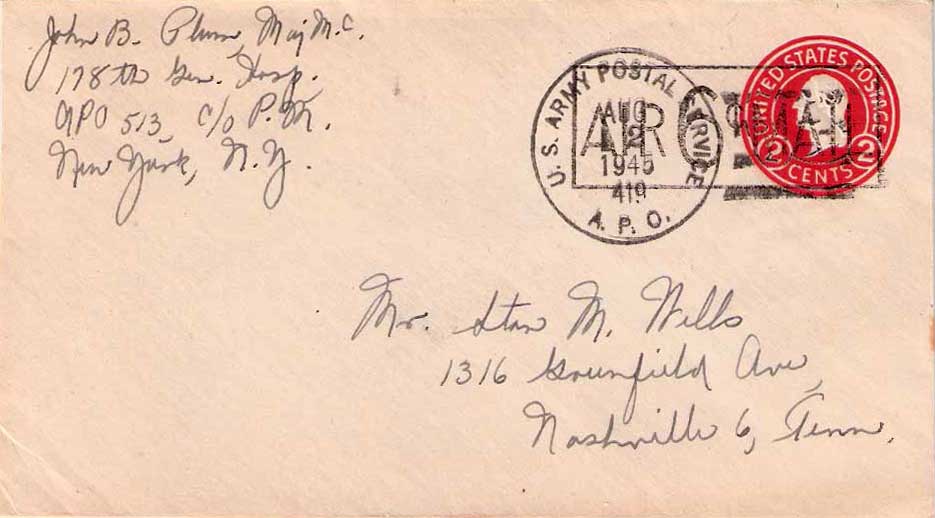 John B. Plum, Maj M.C.
178th Gen. Hosp.
APO 513, c/o P.M.
New York, N.Y.
U. S. ARMY POSTAL SERVICE
AUG
12
1945
419
A. P. O.
AIR MAIL
UNITED STATES POSTAGE
2 CENTS 2
Mr. Stan M. Wells
1316 Greenfield Ave,
Nashville 6, Tenn.